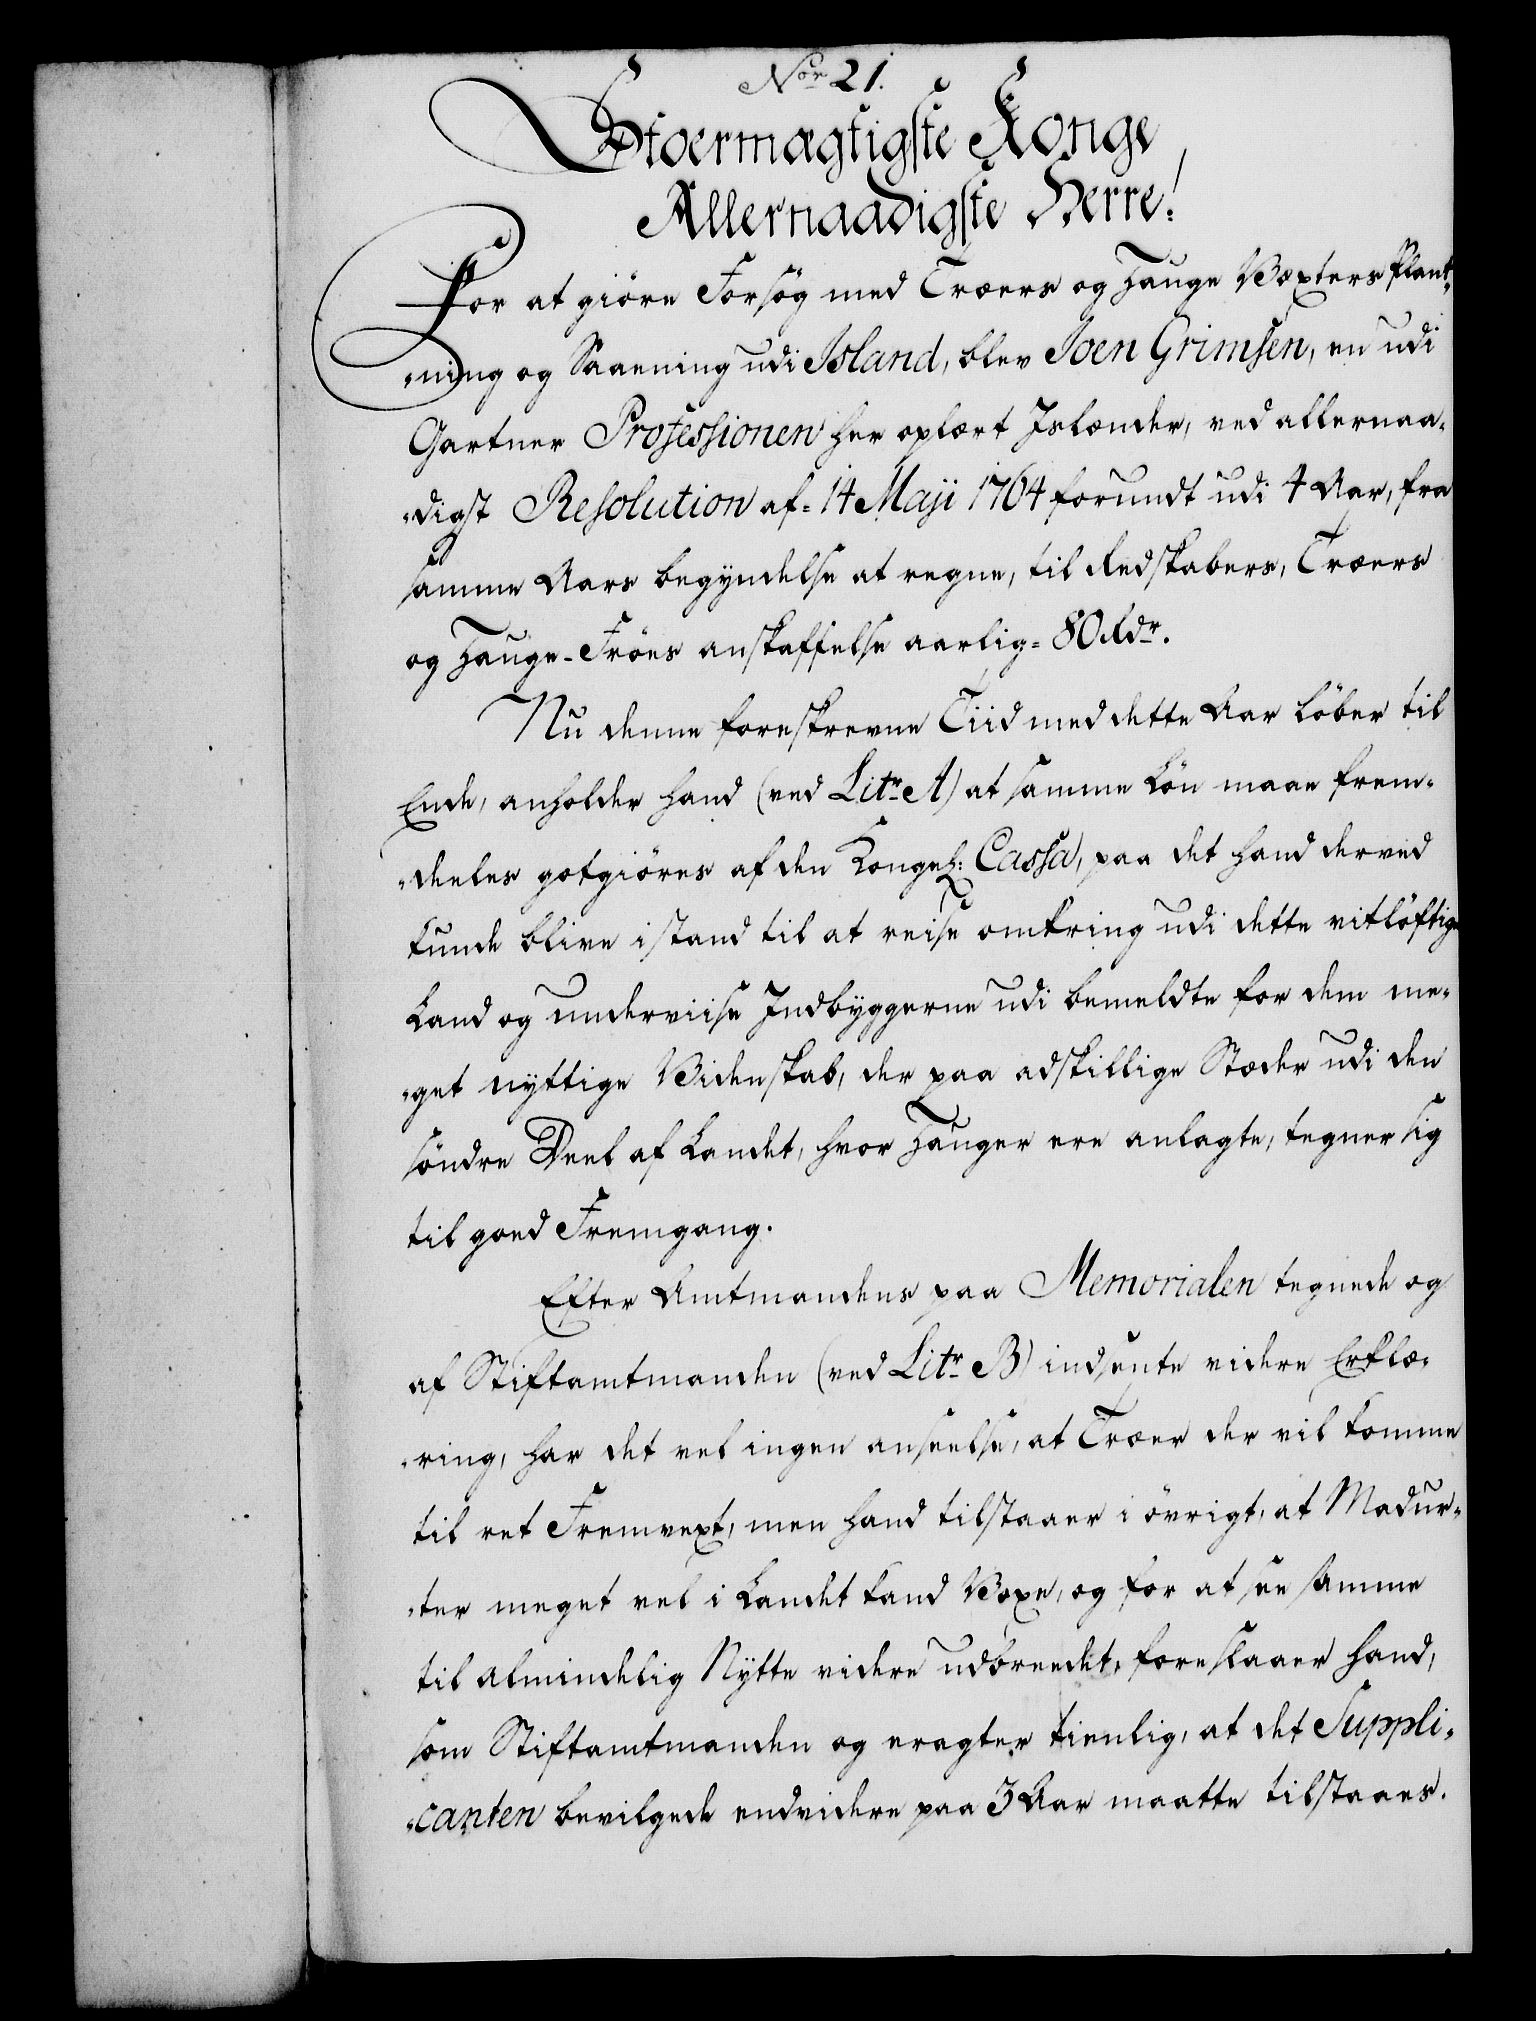 No 21.
Stoermægtigste Konge
Allernaadigste Herre!
For at giöre Forsög med Træers og Hauge Væxters Plant-
-ning og Saaening udi Island, blev Joen Grimsen, en udi
Gartner Professionen her oplært Islænder, ved allernaa-
-digst Resolution af 14 Maji 1764 forundt udi 4 Aar, fra
samme Aars begyndelse at regne, til Redskabers, Træers
og Hauge-Fröes anskaffelse aarlig 80 Rdr.
Nu denne foreskrevne Tiid med dette Aar löber til
Ende, anholder hand (ved Litr. A) at samme Lön maae frem-
-deeles gotgiöres af den Kongel: Cassa, paa det hand derved
kunde blive istand til at reise omkring udi dette vitlöftige
Land og underviise Indbyggerne udi bemeldte for dem me-
-get nyttige Videnskab, der paa adskillige Stæder udi den
söndre Deel af Landet, hvor Hauger ere anlagte, tegner sig
til goed Fremgang.
Efter Amtmandens paa Memorialen tegnede og
af Stiftamtmanden (ved Litr. B) indsente videre Erklæ-
-ring, har det vel ingen anseelse, at Træer der vil komme
til ret Fremvext, men hand tilstaaer i övrigt, at Madur-
-ter meget vel i Landet kand Voxe, og for at see samme
til almindelig Nytte videre udbreedt, foreslaaer hand,
som Stiftamtmanden og eragter tienlig, at det Suppli-
-canten bevilgede endvidere paa 3 Aar maatte tilstaaes.